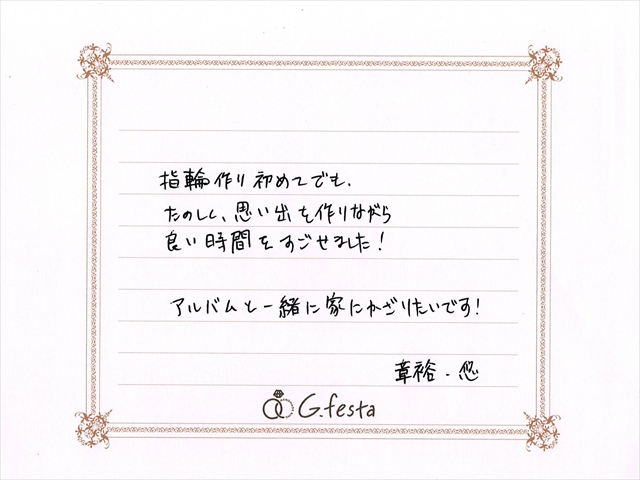 指輪作り初めてでも、
たのしく、思い出を作りながら
良い時間をすごせました!
アルバムと一緒に家にかざりたいです!
章裕・悠
G.festa